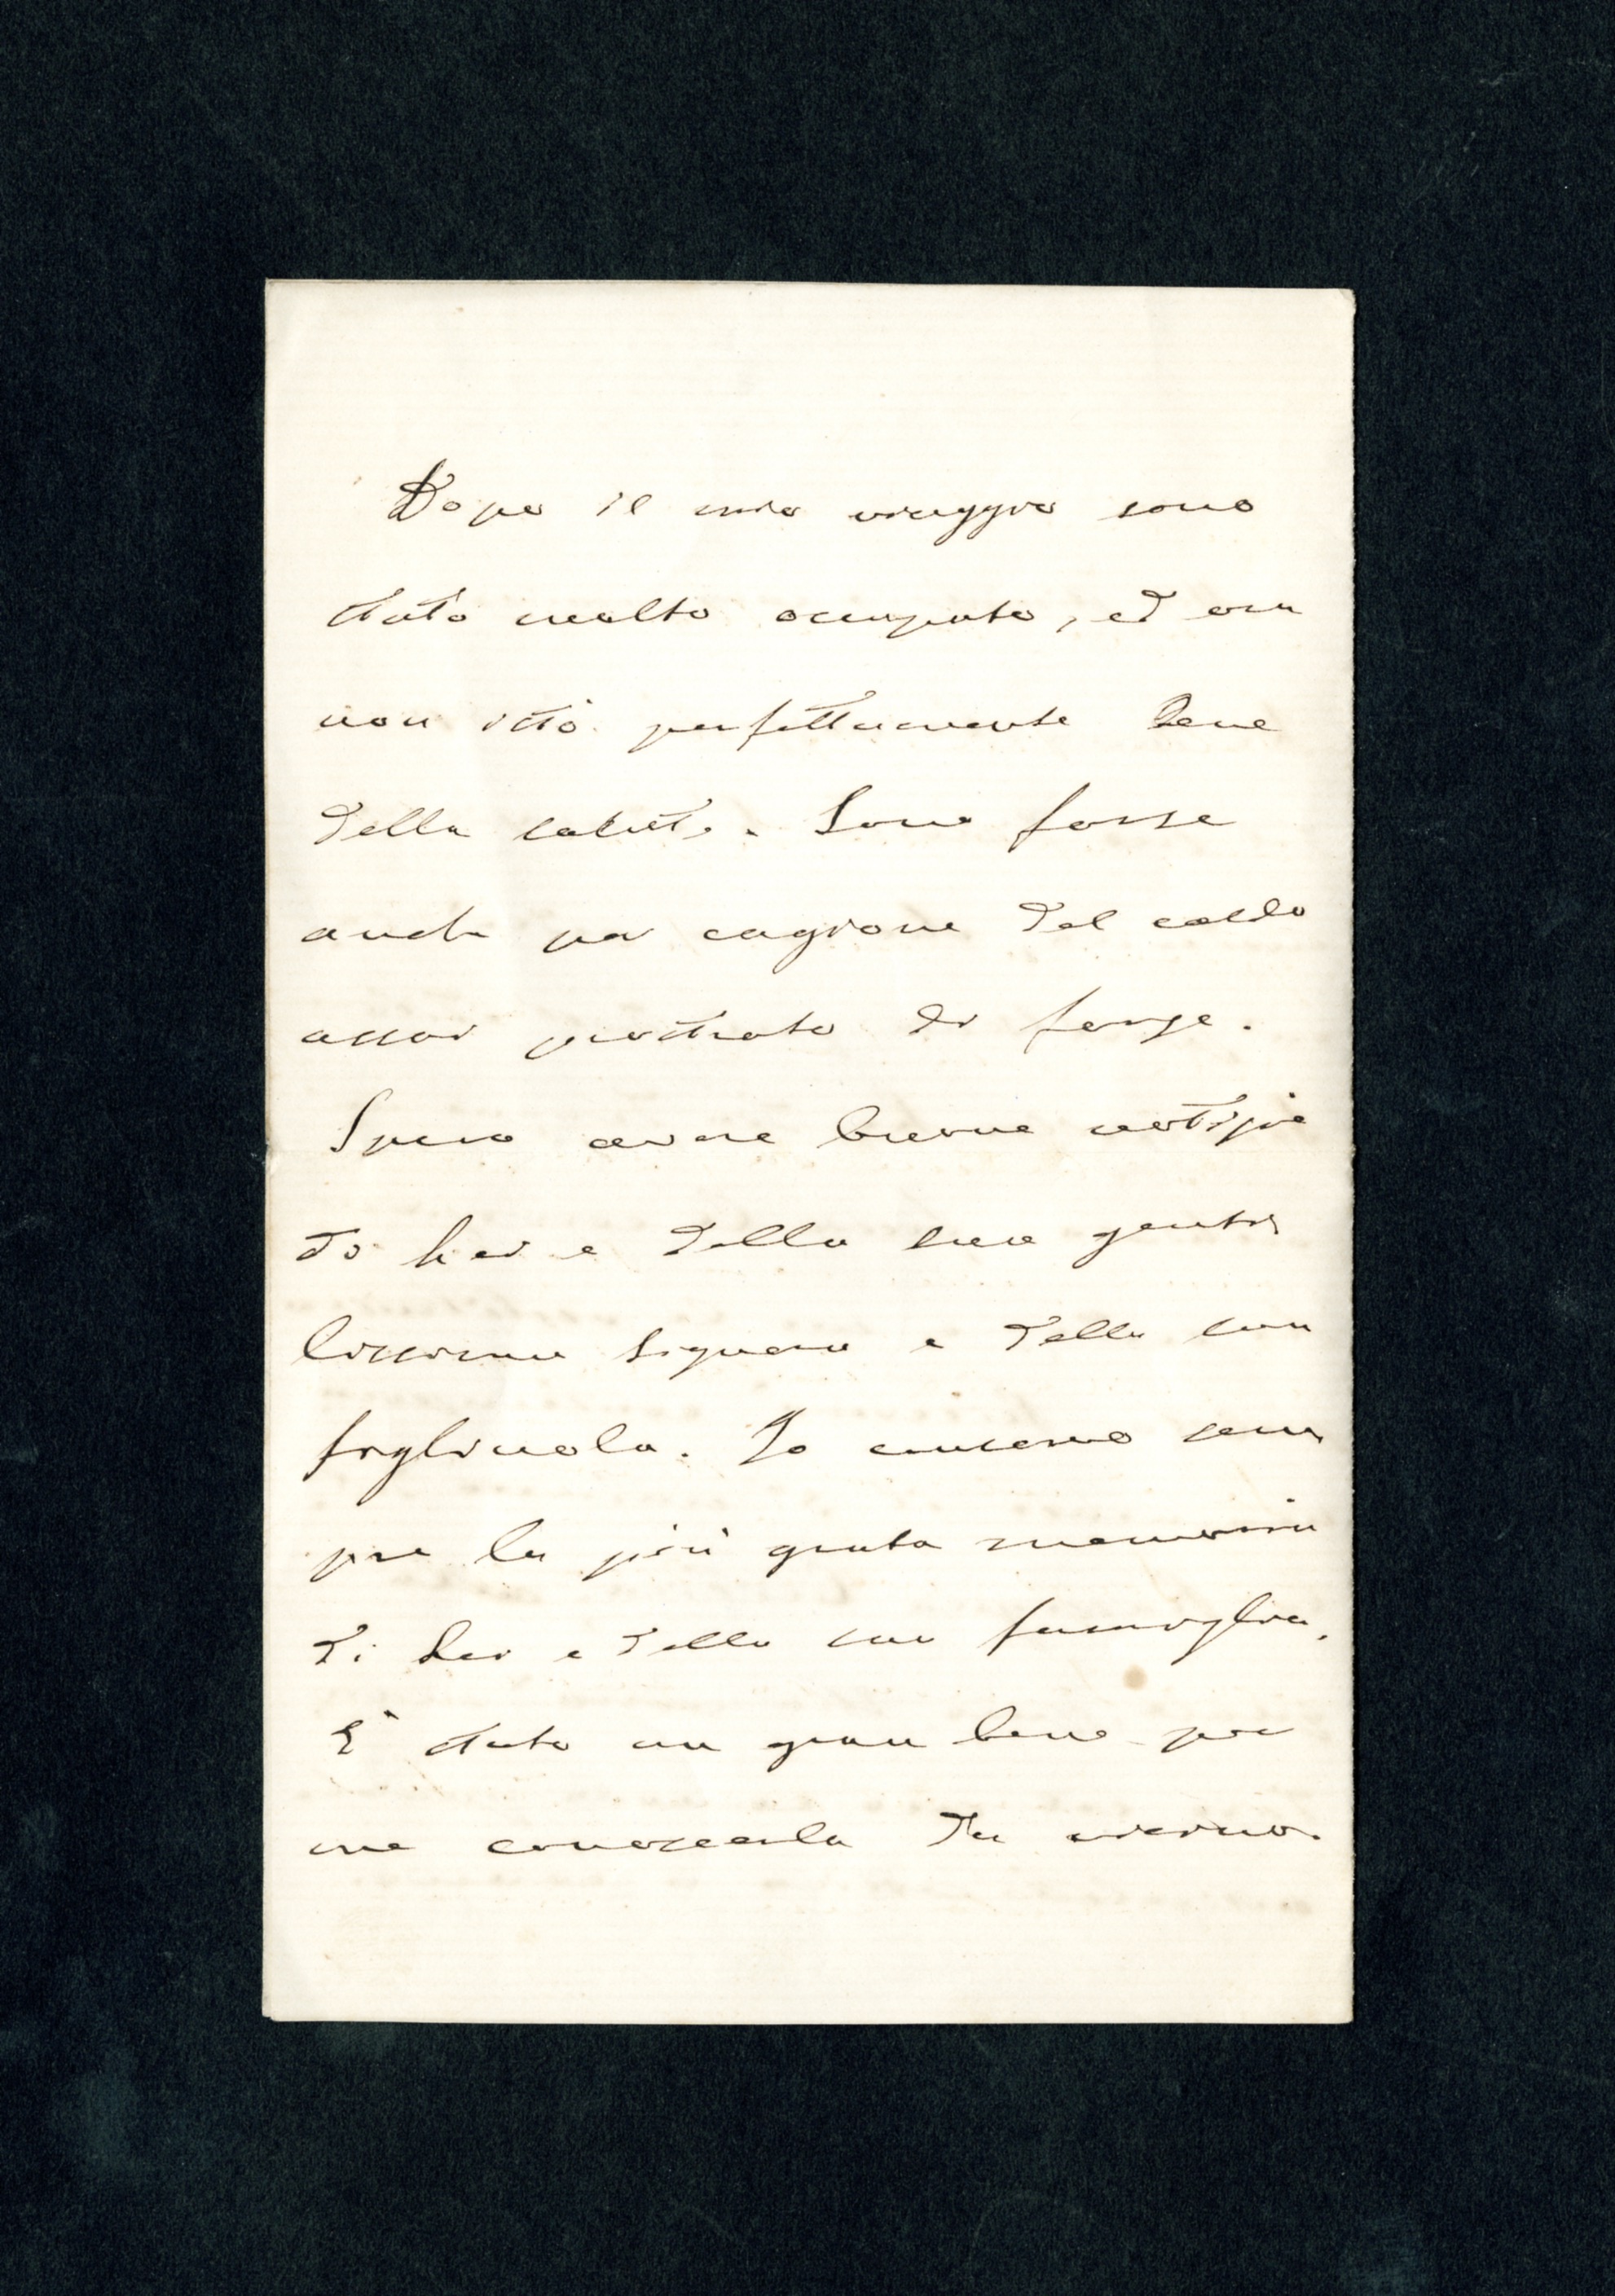 Dopo il mio viaggio sono
stato molto occupato, ed ora
non stò perfettamente bene
della salute. Sono forse
anche per cagione del caldo
assai prostrato di forze.
Spero avere buone notizie
di Lei e della sua genti
lissima Signora e della sua
figliuola. Io conservo sem
pre la più grata memoria
di Lei e della sua famiglia.
È stato un gran bene per
me conoscerla da vicino.